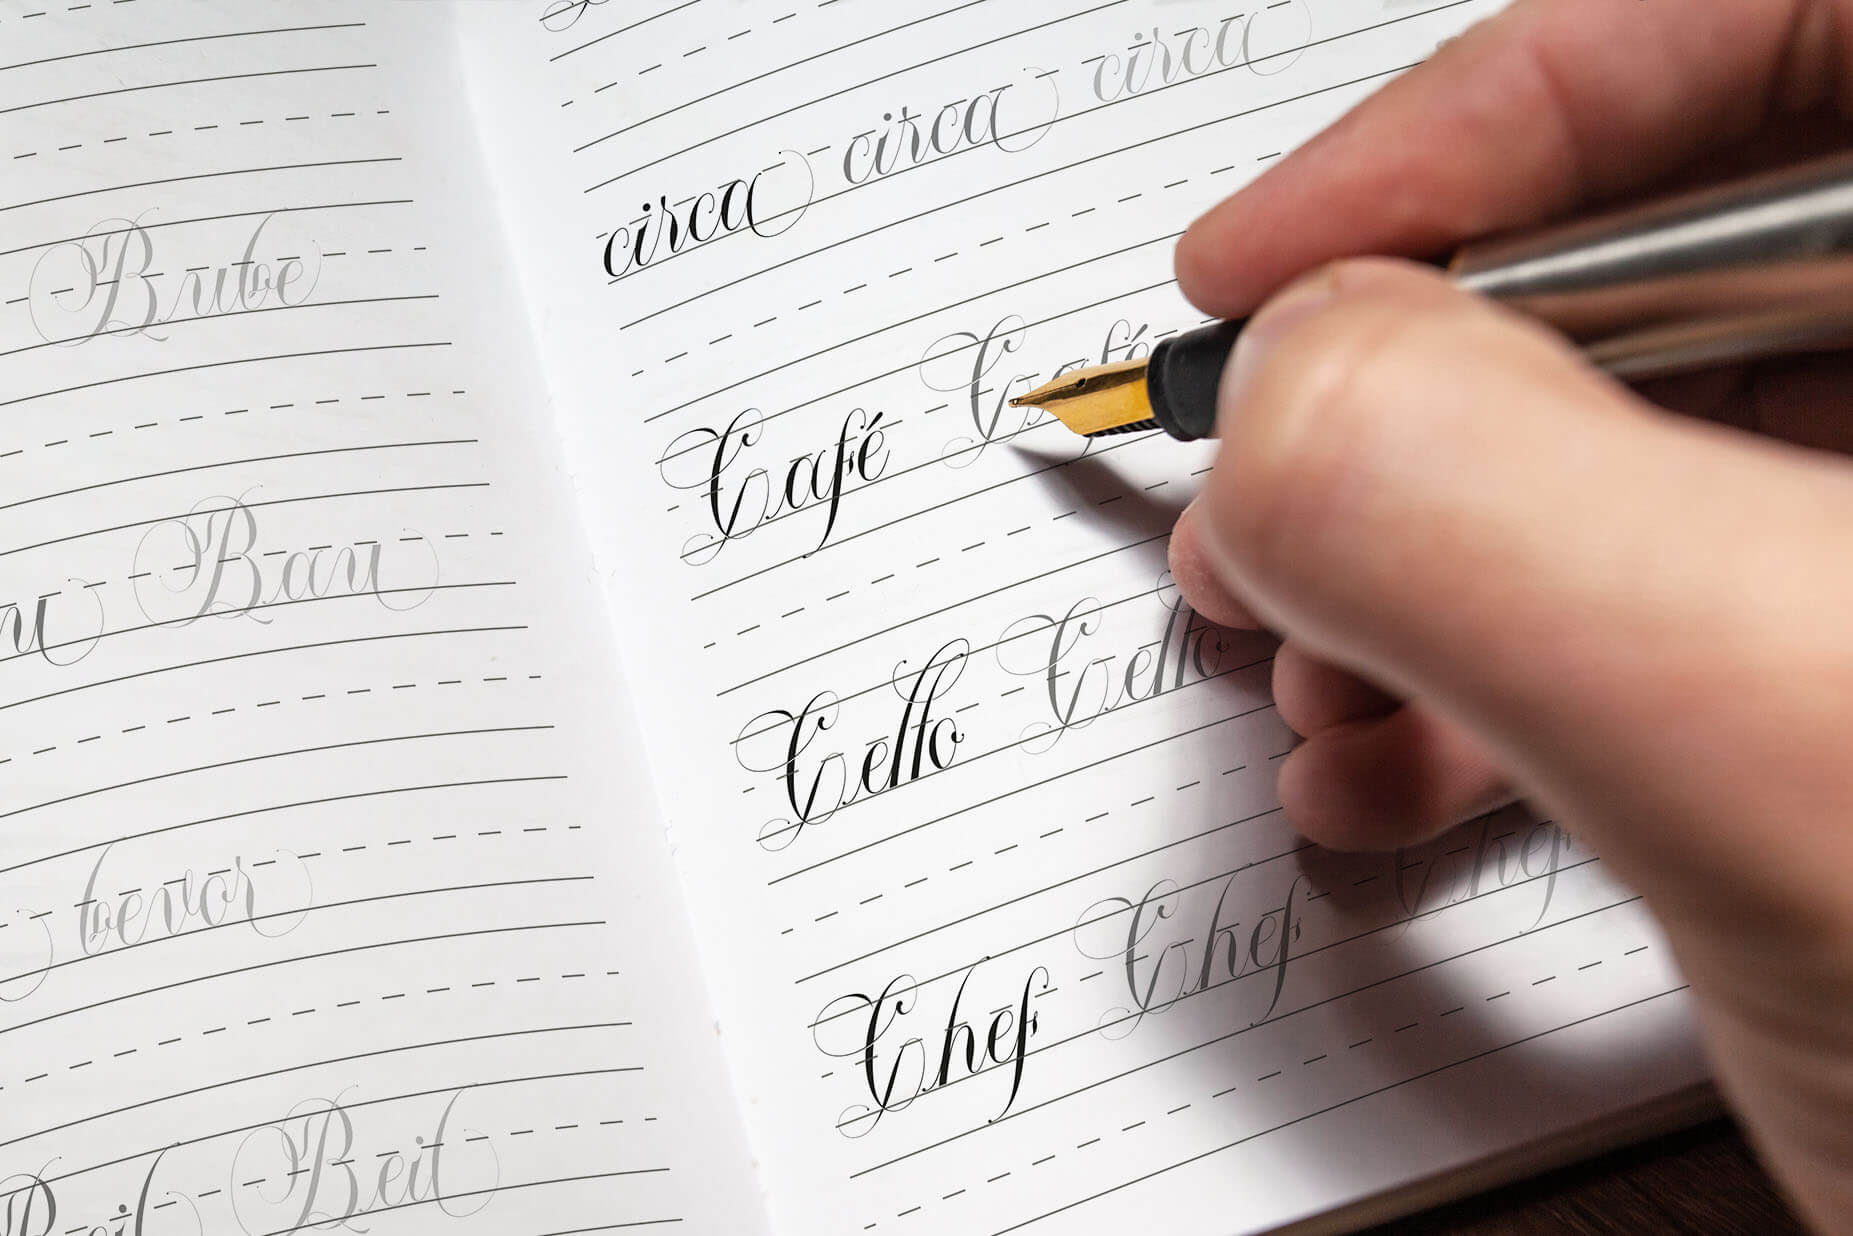 Bube
u Bau
bevor
Beil Beil
circa circa circa
Café Café
Cello Cello
Chef Chef Chef